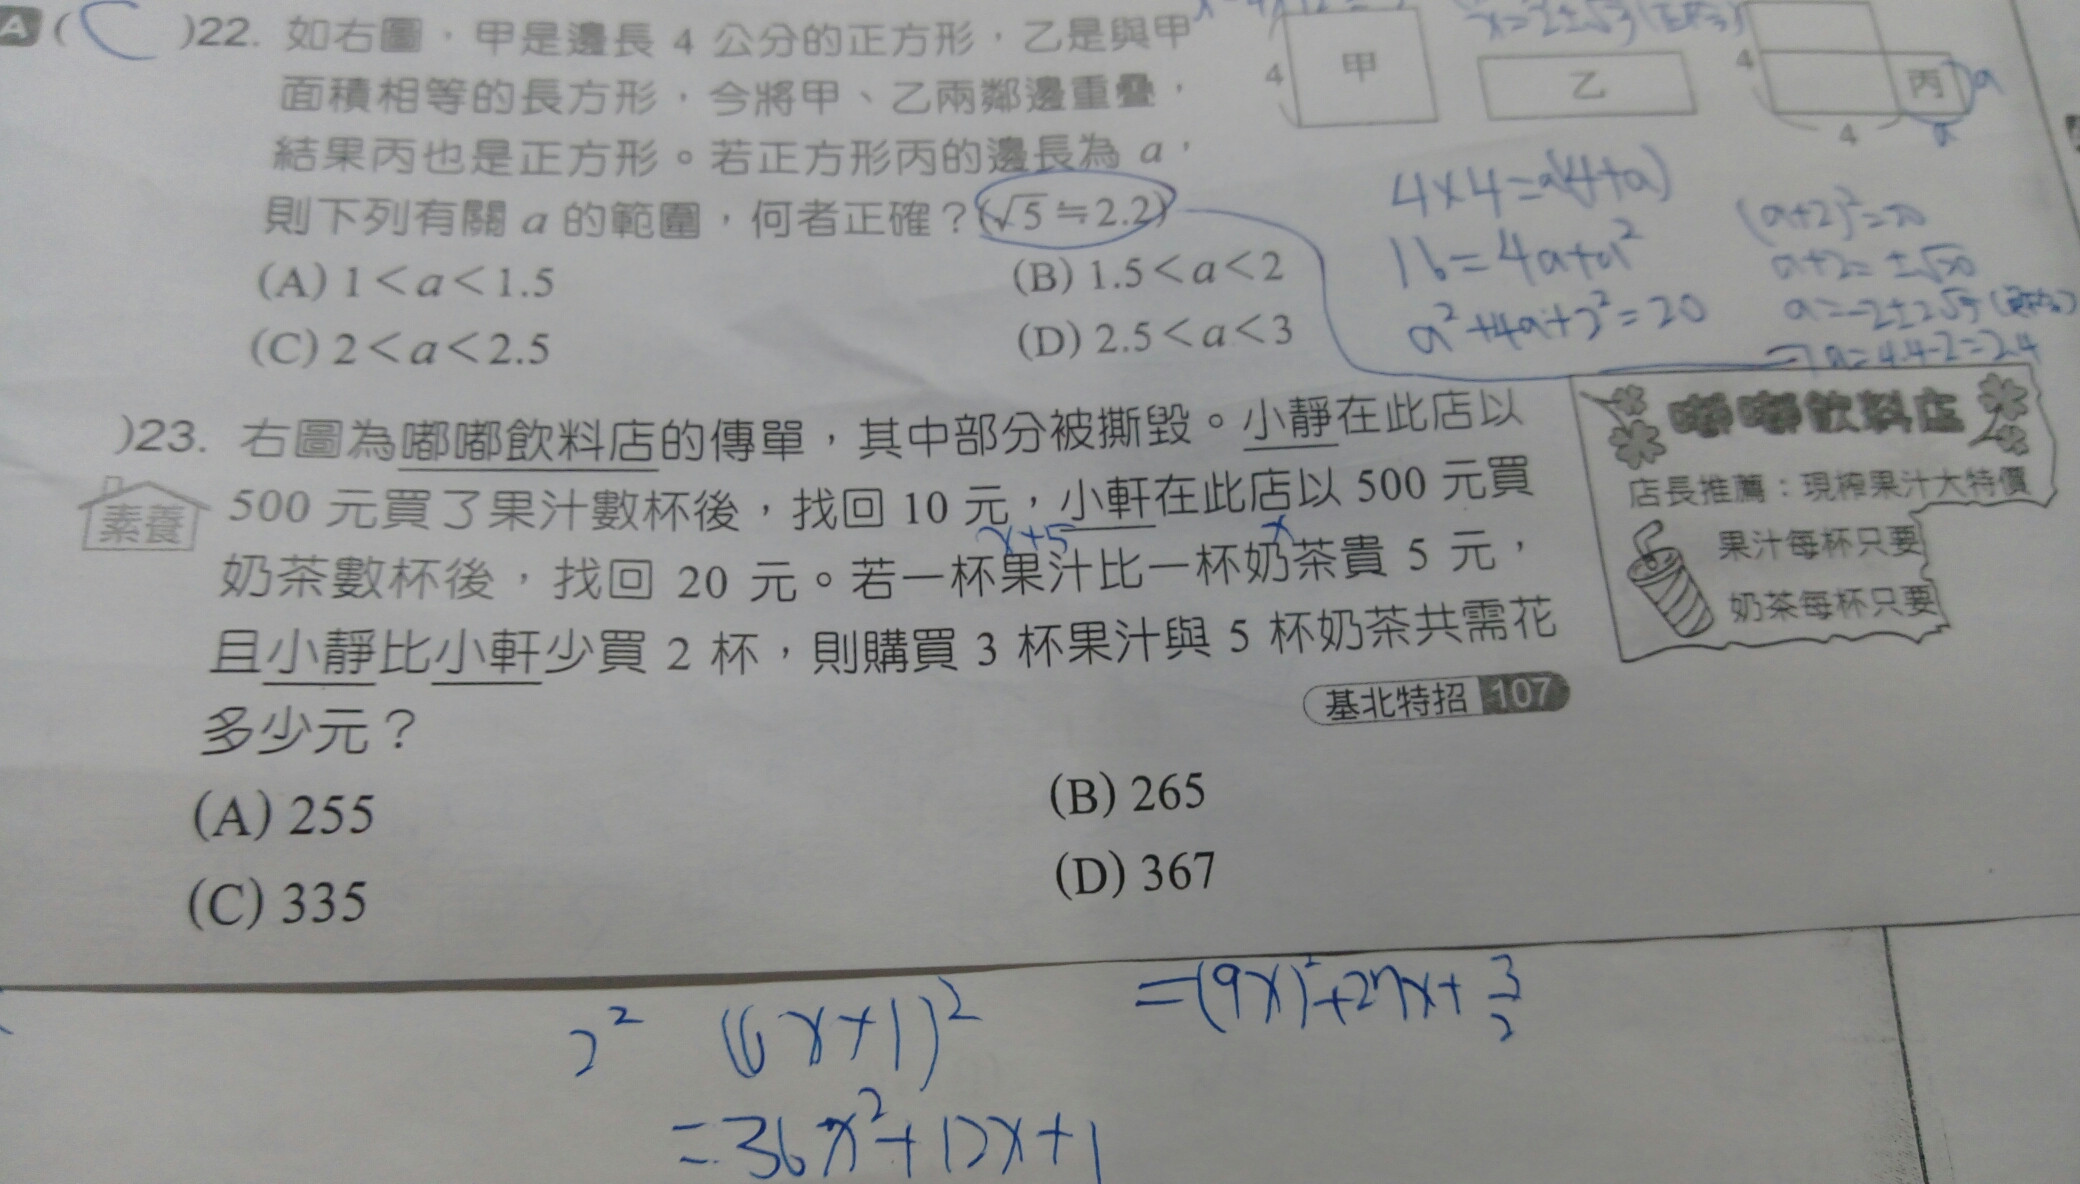 A ( C )22. 如右圖，甲是邊長 4 公分的正方形，乙是與甲
面積相等的長方形，今將甲、乙兩鄰邊重疊，
結果丙也是正方形。若正方形丙的邊長為 a，
則下列有關 a 的範圍，何者正確？(√5≒2.2)
(A) 1＜a＜1.5
(B) 1.5＜a＜2
(C) 2＜a＜2.5
(D) 2.5＜a＜3
4 甲
乙
4 丙 a
4 a
4×4=a(4+a)
16=4a+a²
a²+4a+2²=20
(a+2)²=20
a+2=±√20
a=-2±2√5
⇒a=4.4-2=2.4
)23. 右圖為嘟嘟飲料店的傳單，其中部分被撕毀。小靜在此店以
500 元買了果汁數杯後，找回 10 元，小軒在此店以 500 元買
x+5 x
奶茶數杯後，找回 20 元。若一杯果汁比一杯奶茶貴 5 元，
且小靜比小軒少買 2 杯，則購買 3 杯果汁與 5 杯奶茶共需花
多少元？
素養
基北特招 107
(A) 255
(B) 265
(C) 335
(D) 367
嘟嘟飲料店
店長推薦：現榨果汁大特價
果汁每杯只要
奶茶每杯只要
2² (6x+1)²
=36x²+12x+1
=(9x)²+27x+3/2